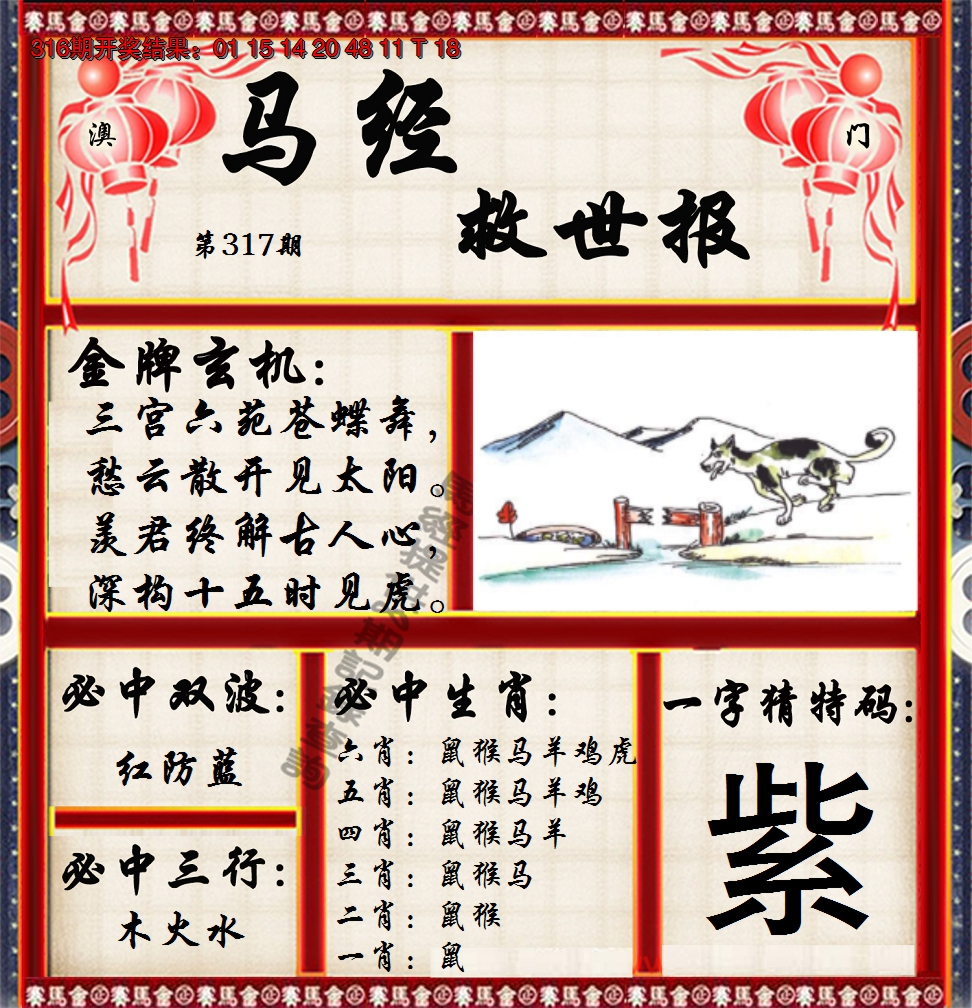 賽馬會 賽馬會 賽馬會 賽馬會 賽馬會 賽馬會 賽馬會 賽馬會
316期开奖结果：01 15 14 20 48 11 T 18
马经
澳
门
救世报
第317期
金牌玄机：
三宫六苑苍蝶舞，
愁云散开见太阳。
羡君终解古人心，
深构十五时见虎。
必中双波：
红防蓝
必中三行：
木火水
必中生肖：
六肖：鼠猴马羊鸡虎
五肖：鼠猴马羊鸡
四肖：鼠猴马羊
三肖：鼠猴马
二肖：鼠猴
一肖：鼠
一字猜特码：
紫